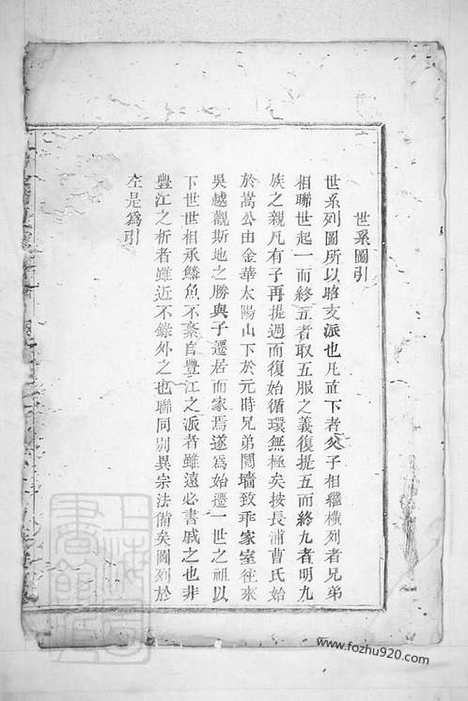 世系圖引
世系列圖所以聯支派也凡直下者父子相繼橫列者兄弟
相聯世起一而終五者取五服之義復提五而終九者明九
族之親凡有子再提週而復始循環無極矣按長浦曹氏始
於嵩公由金華太陽山下於元時兄弟鬩墻致乖家室往來
吳越觀斯地之勝與子遷居而家焉遂為始遷一世之祖以
下世世相承鱗魚不紊自豐江之派者雖遠必書戚之也非
豐江之析者雖近不錄外之也聯同別異宗法備矣圖列於
左是為引
www.fozhu920.com